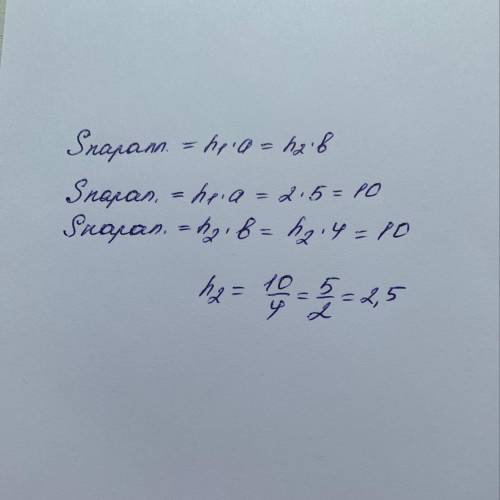 Sпарал. = h₁·a = h₂·b
Sпарал. = h₁·a = 2·5 = 10
Sпарал. = h₂·b = h₂·4 = 10
h₂ = 10/4 = 5/2 = 2,5